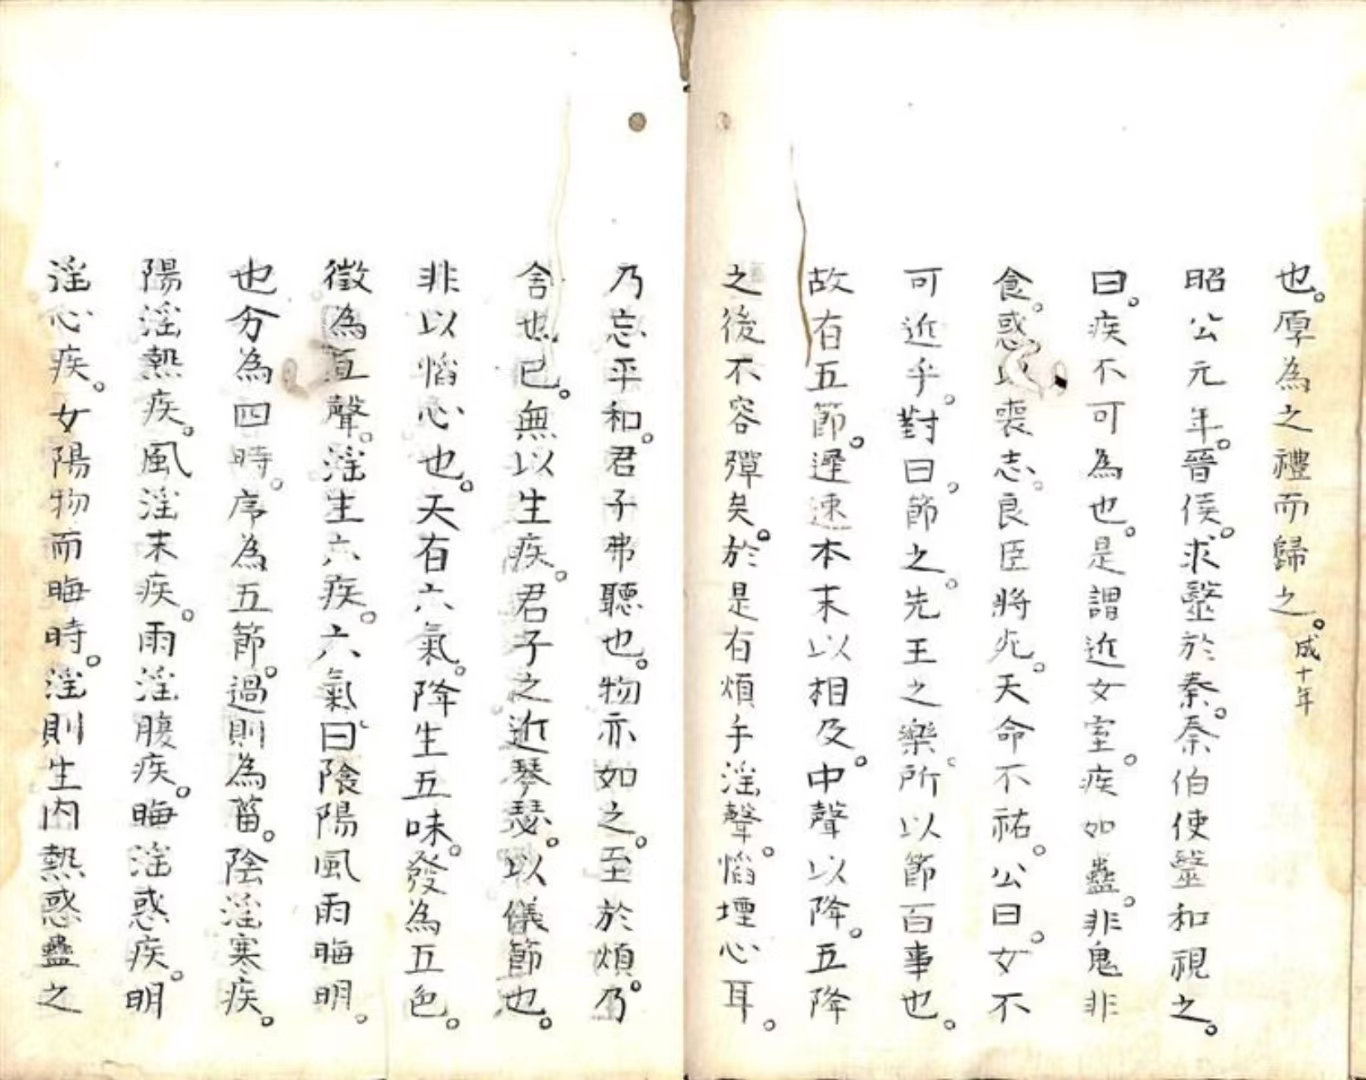 也。厚為之禮而歸之。成十年
昭公元年。晉侯。求毉於秦。秦伯使毉和視之。
曰。疾不可為也。是謂近女室。疾如蠱。非鬼非
食。惑以喪志。良臣將死。天命不祐。公曰。女不
可近乎。對曰。節之。先王之樂。所以節百事也。
故有五節。遲速本末以相及。中聲以降。五降
之後不容彈矣。於是有煩手淫聲。慆堙心耳。
乃忘平和。君子弗聽也。物亦如之。至於煩。乃
舍也已。無以生疾。君子之近琴瑟。以儀節也。
非以慆心也。天有六氣。降生五味。發為五色。
徵為五聲。淫生六疾。六氣。曰陰陽風雨晦明。
也分為四時。序為五節。過則為菑。陰淫寒疾。
陽淫熱疾。風淫末疾。雨淫腹疾。晦淫惑疾。明
淫心疾。女陽物而晦時。淫則生內熱惑蠱之